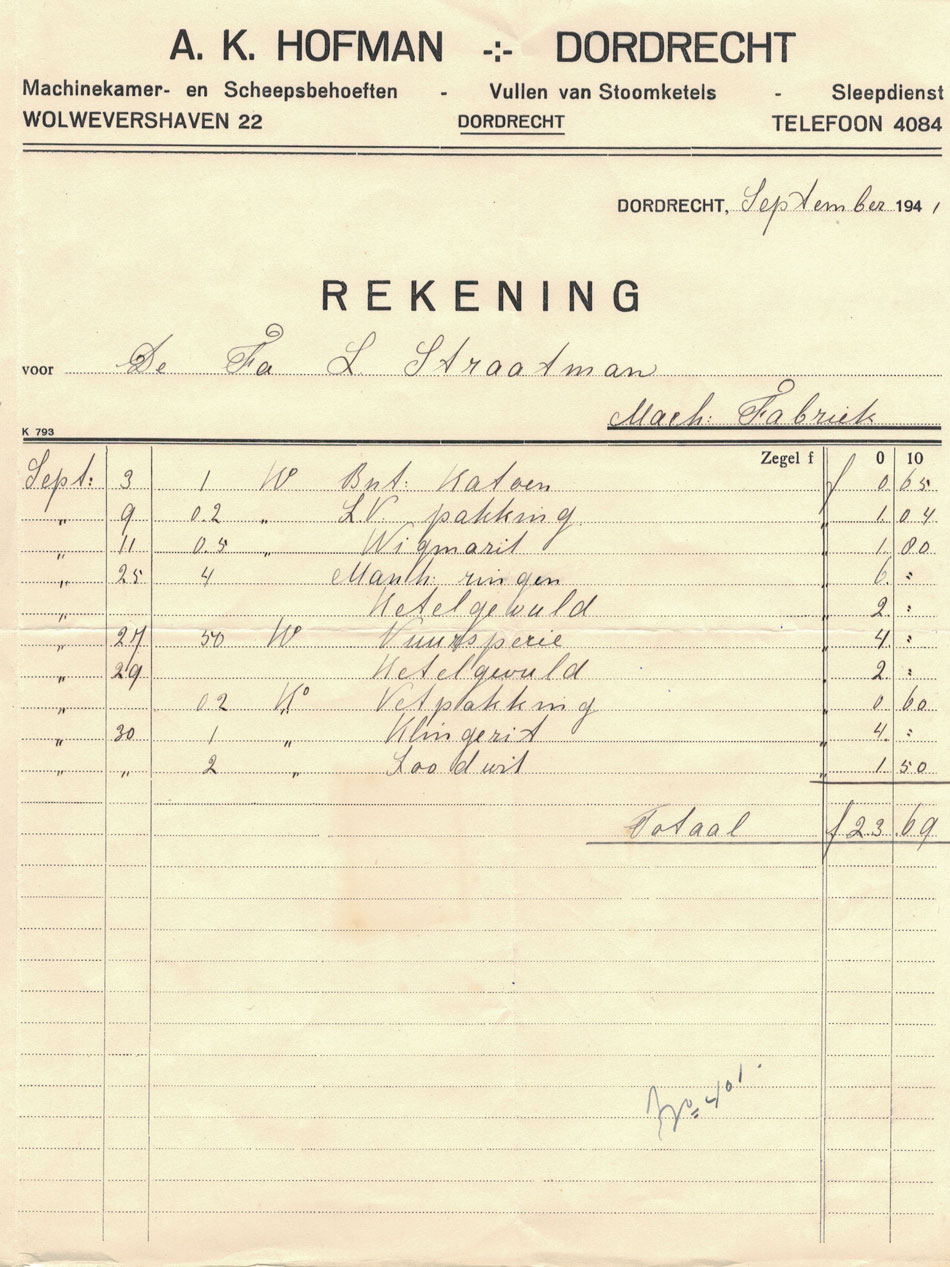 A. K. HOFMAN -:- DORDRECHT
Machinekamer- en Scheepsbehoeften - Vullen van Stoomketels - Sleepdienst
WOLWEVERSHAVEN 22 DORDRECHT TELEFOON 4084
DORDRECHT, September 1941
REKENING
voor De Fa L Straatman
Mach: Fabriek
K 793
Zegel f 0 10
Sept: 3 1 Katoen f 0 65
„ 9 0.2 „ L.V. pakking „ 1. 04
„ 11 0.5 „ Wigmarit „ 1. 80
„ 25 4 Manh: ringen „ 6. :
„ Ketelgevuld „ 2. :
„ 27 50 „ 4. :
„ 29 Ketelgevuld „ 2. :
„ 0.2 Ko Vetpakking „ 0. 60
„ 30 1 „ Klingerit „ 4. :
„ „ 2 „ Loodwit „ 1. 50
Totaal f 23.69
No= 401.